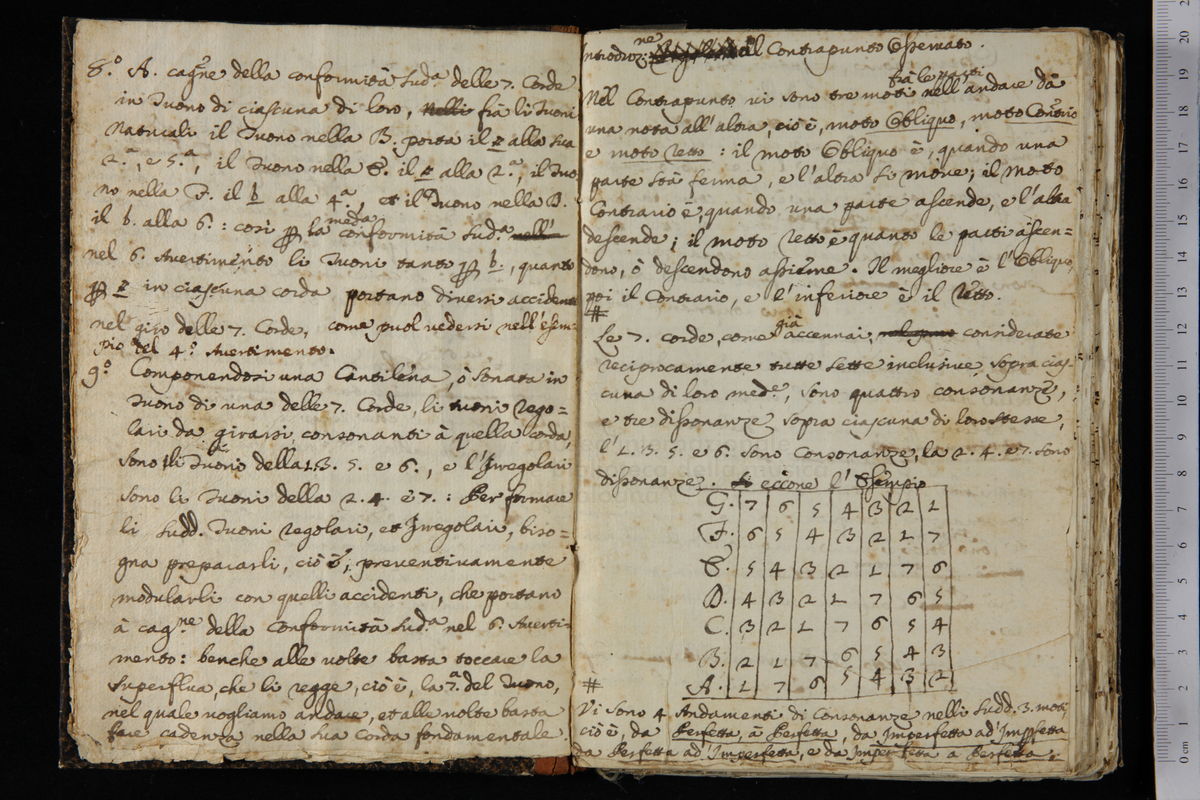 8.º A. cag.ne della conformità sud.a delle 7. Corde
in Tuono di ciascuna di loro, nelli frà li Tuoni
Naturali il Tuono nella B. porta il # alla sua
2.a, e 5.a, il Tuono nella E. il # alla 2.a, il Tuo
no nella F. il b alla 4.a, et il Tuono nella D.
il b. alla 6: così la meda conformità sud.a nell'
nel 6. Avertimento li Tuoni tanto b, quanto
# in ciascuna corda portano diversi accidenti
nel giro delle 7. Corde, come puol vedersi nell'esem-
pio del 4.º Avertimento.
9.º Componendosi una Cantilena, ò Sonata in
Tuono di una delle 7. Corde, li tuoni rego=
lari da girarsi, consonanti à quella corda,
sono li Tuoni della 1. 3. 5. e 6., e l'Irregolari
sono li Tuoni della 2. 4. e 7.: Per formare
li sudd. Tuoni regolari, et Irregolari, biso=
gna prepararli, ciò è, preventivamente
modularli con quelli accidenti, che portano
à cag.ne della conformità sud.a nel 6. Averti-
mento: benche alle volte basta toccare la
superflua, che li regge, ciò è, la 7.a del Tuono,
nel quale vogliamo andare, et alle volte basta
fare cadenza nella sua Corda fondamentale.
Introduz:ne al Contrapunto Osservato.
frà le parti
Nel Contrapunto vi sono tre moti nell'andare da
una nota all'altra, ciò è, moto Obliquo, moto Contrario
e moto retto: il moto Obliquo è, quando una
parte stà ferma, e l'altra si move; il moto
Contrario è, quando una parte ascende, e l'altra
descende; il moto retto è quanto le parti ascen=
dono, ò descendono assieme. Il megliore è l'Obliquo,
poi il Contrario, e l'inferiore è il retto.
#
Le 7. corde, come già accennai, considerate
reciprocamente tutte sette inclusive, sopra cias
cuna di loro med.e, sono quattro consonanze,
e tre dissonanze sopra ciascuna di loro stesse,
l'1. 3. 5. e 6. sono Consonanze, la 2. 4. e 7. sono
dissonanze. eccone l'Esempio
G. 7 6 5 4 3 2 1
F. 6 5 4 3 2 1 7
E. 5 4 3 2 1 7 6
D. 4 3 2 1 7 6 5
C. 3 2 1 7 6 5 4
B. 2 1 7 6 5 4 3
# A. 1 7 6 5 4 3 2
Vi sono 4 Andamenti di Consonanze nelli sudd. 3. moti
ciò è, da Perfetta, à Perfetta, da Imperfetta ad Imperfetta
da Perfetta ad Imperfetta, e da Imperfetta a Perfetta.
0 cm 1 2 3 4 5 6 7 8 9 10 11 12 13 14 15 16 17 18 19 20